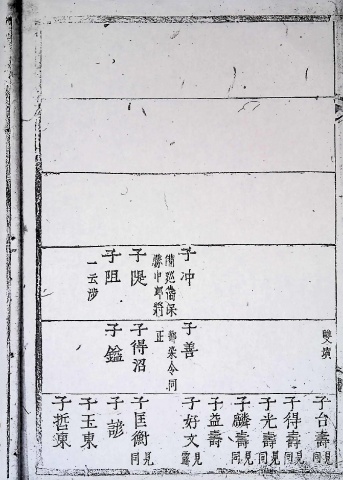 雙墳
子冲
備巡衛保
勝中郎將
子隄
子阻
一云涉
子善
都染令同
正
子得沼
子鎰
子台壽 見同
子得壽 見同
子光壽 見同
子麟壽 見同
子益壽
子好文 見露
子匡衡 見同
子諺
子玉東
子哲東